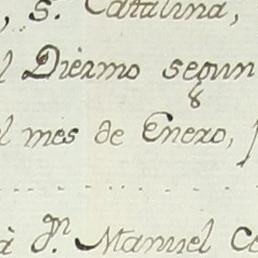 , S.ᵃ Catalina,
Diezmo segun
8
mes de Enero,
à Dⁿ. Manuel